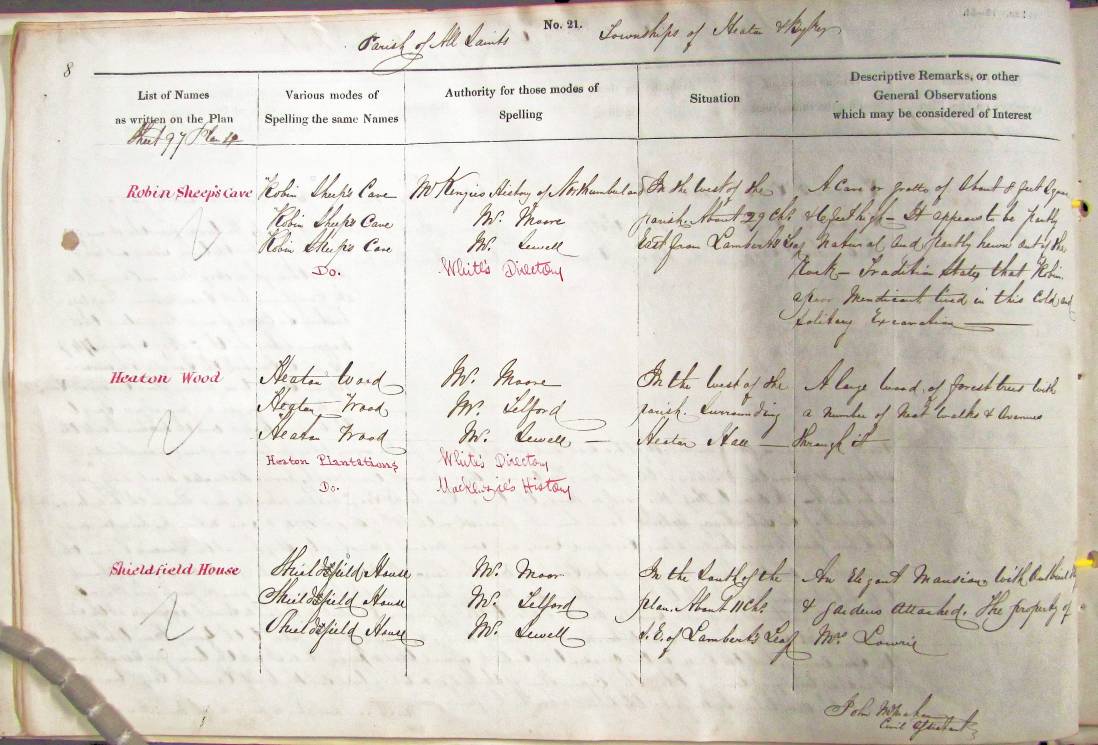 No. 21.
Parish of All Saints Townships of Heaton & Byker
8
List of Names
as written on the Plan
Various modes of
Spelling the same Names
Authority for those modes of
Spelling
Situation
Descriptive Remarks, or other
General Observations
which may be considered of Interest
Sheet 97 Plan 14
Robin Sheep's Cave
Robin Sheep's Cave
Robin Sheep's Cave
Robin Sheep's Cave
Do.
McKenzies History of Northumberland
Mr. Moore
Mr. Sewell
White's Directory
In the West of the
parish. About 29 Chs.
East from Lambert's Leap
A Cave or grotto of About 8 feet Square
& 6 feet high - It appears to be partly
Natural and partly hewn out of the
Rock - Tradition States that Robin
a poor Mendicant lived in this Cold and
Solitary Excavation
Heaton Wood
Heaton Wood
Heaton Wood
Heaton Wood
Heaton Plantations
Do.
Mr. Moore
Mr. Telford
Mr. Sewell
White's Directory
Mackenzie's History
In the West of the
parish. Surrounding
Heaton Hall
A large Wood, of forest trees with
a number of Neat Walks & Avenues
through it
Shieldfield House
Shieldfield House
Shieldfield House
Shieldfield House
Mr. Moor
Mr. Telford
Mr. Sewell
In the South of the
plan. About 11 Chs.
S.E. of Lambert's Leap
An Elegant Mansion with
& gardens attached. The property of
Mrs. Lowrie
John
Civil Assistant